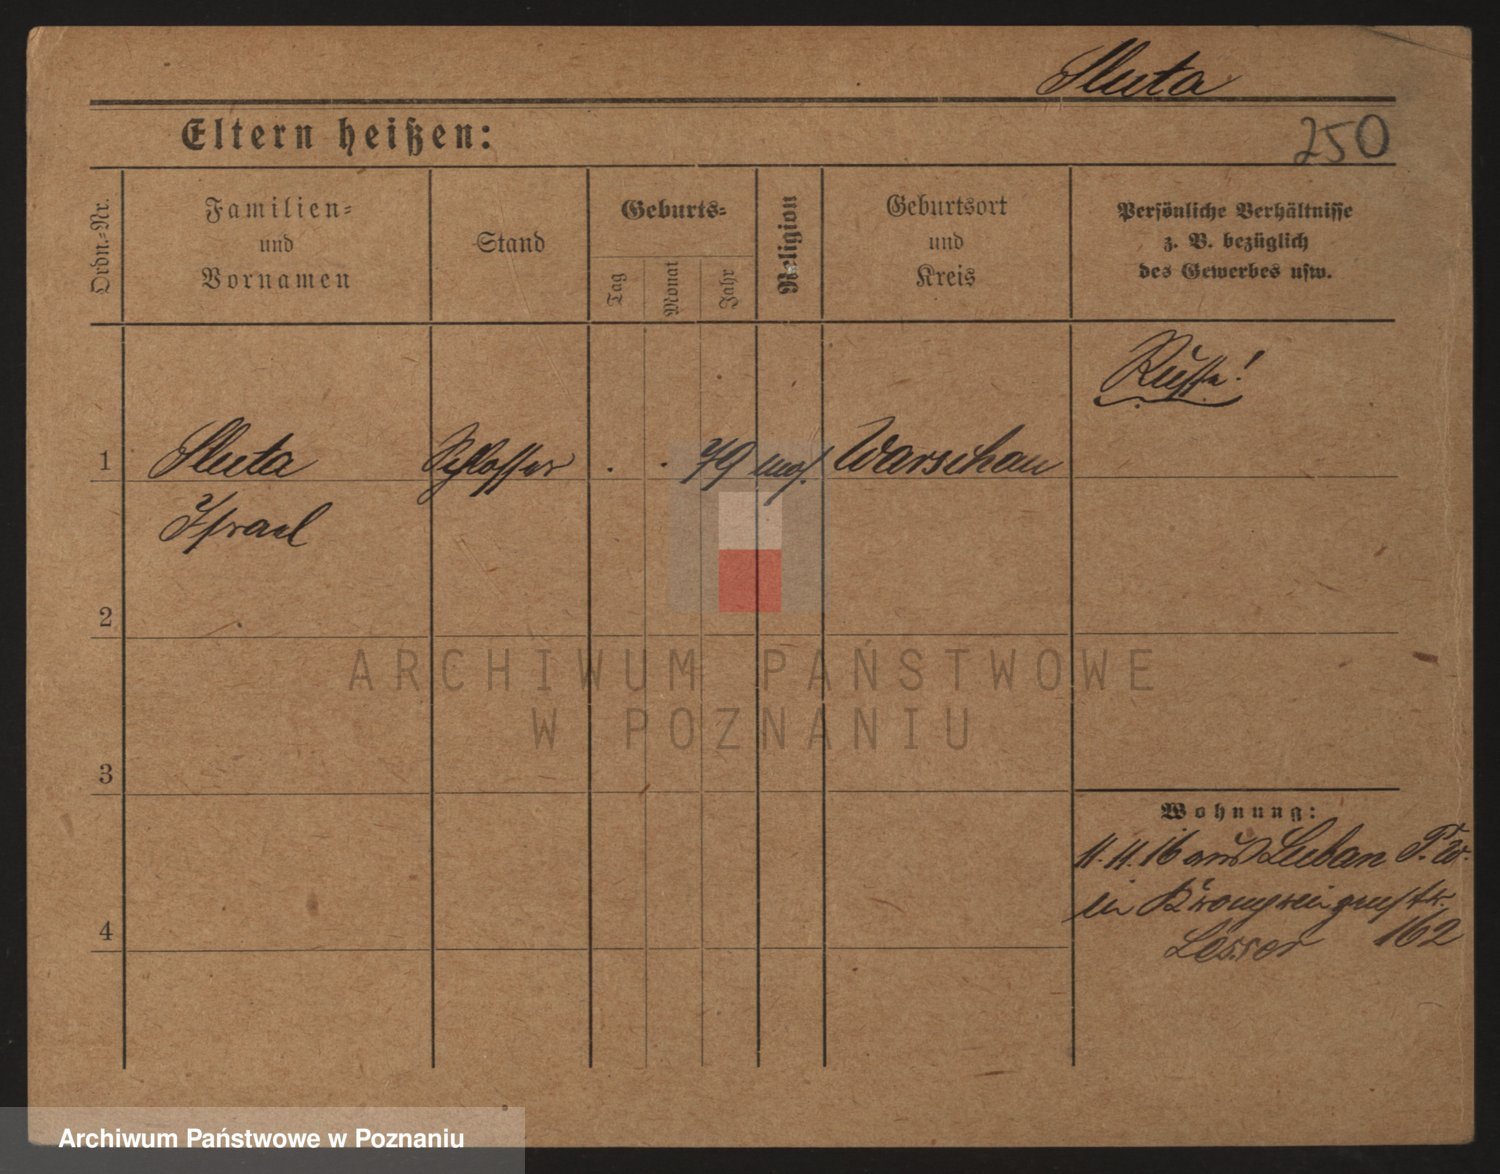 Sluta
Eltern heißen:
250
Ordn.-Nr.
Familien-
und
Vornamen
Stand
Geburts-
Tag
Monat
Jahr
Religion
Geburtsort
und
Kreis
Persönliche Verhältnisse
z. B. bezüglich
des Gewerbes usw.
Russe!
1 Sluta Schlosser . . 79 mos. Warschau
Israel
2
ARCHIWUM PAŃSTWOWE
W POZNANIU
3
Wohnung:
11.11.16 aus Luban P. W.
in Kronprinzenstr.
162
Lesser
4
Archiwum Państwowe w Poznaniu